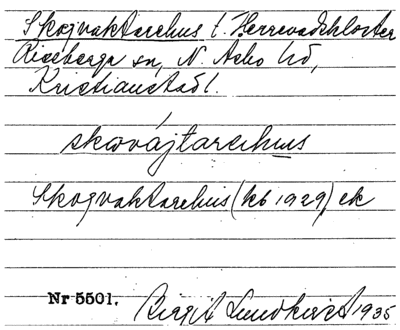 Skogvaktarehus t. Herrevadskloster
Riseberga sn, N. Åsbo hd,
Kristianstads l.
skωvájtarehus
Skogvaktarehus (kb 1929) ek
Nr 5501. Birgit Lundkvist 1935